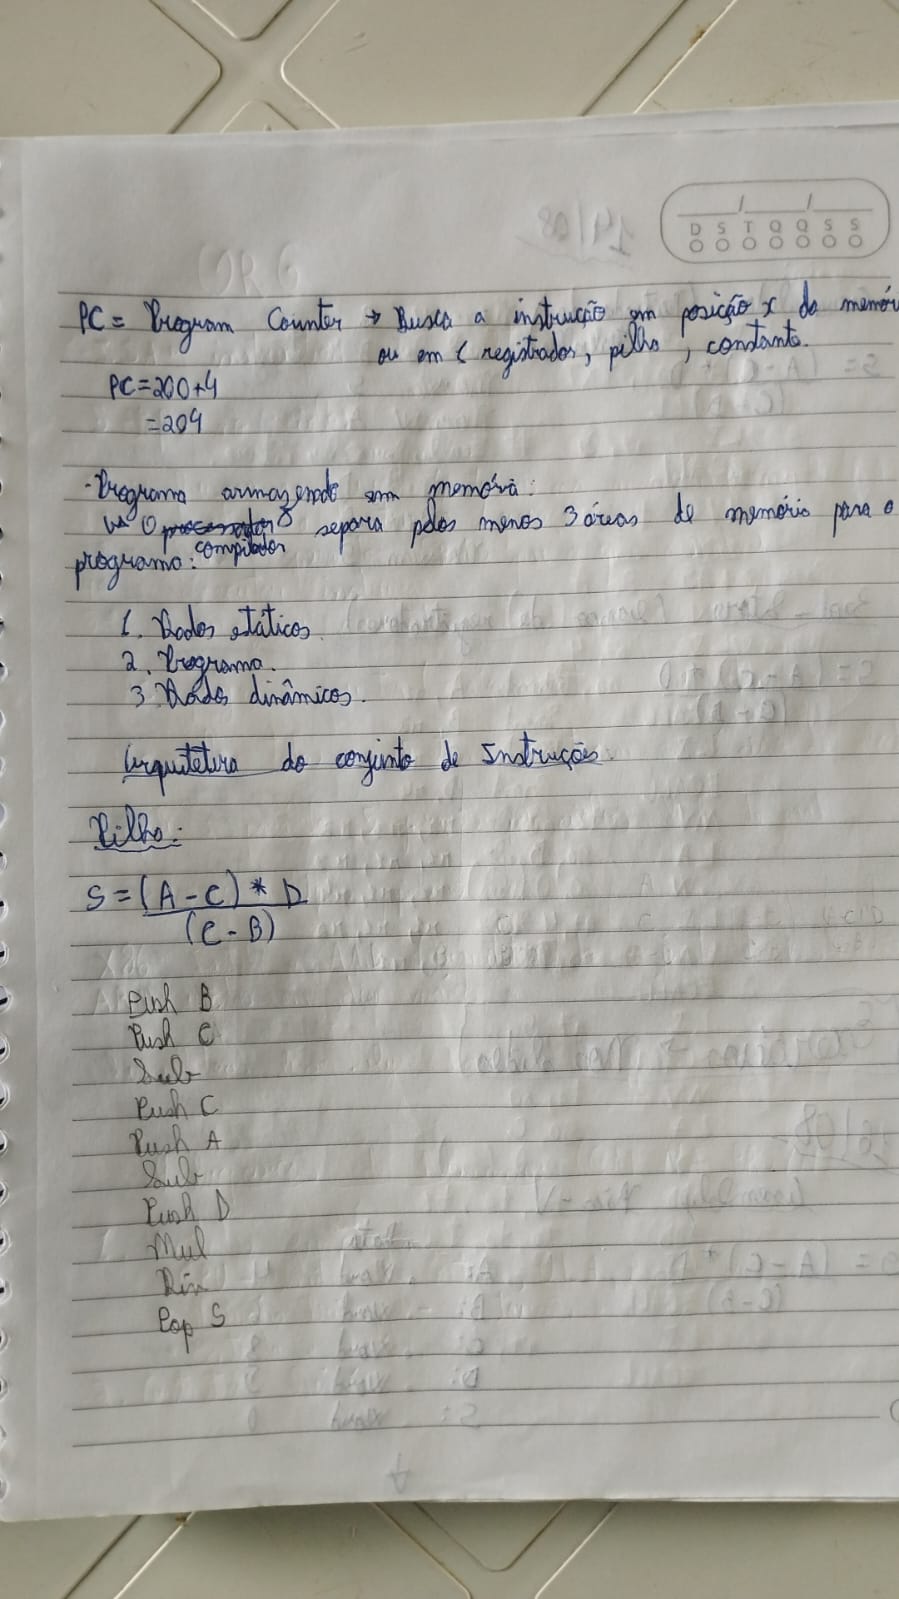 D S T Q Q S S
PC = Program Counter → Busca a instrução em posição x da memóri
ou em ( registrador, pilha, constante.
PC=200+4
=204
- Programa armazenado em memória:
↳ O processador separa pelos menos 3 áreas de memória para o
compilador
programa:
1. Dados estáticos.
2. Programa.
3. Dados dinâmicos.
Arquitetura do conjunto de Instruções.
Pilha:
S=(A-C) * D
(C-B)
Push B
Push C
Sub
Push C
Push A
Sub
Push D
Mul
Div
Pop S